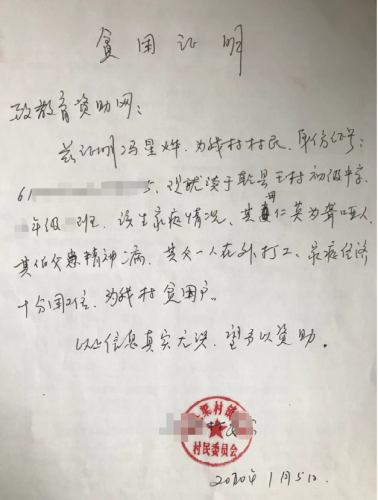 贫困证明
致教育资助网：
兹证明冯星烨，为我村村民，身份证号：
61 5，现就读于 县王村初级中学
年级 班，该生家庭情况，其母仁英为聋哑人
其伯父患精神病，其父一人在外打工，家庭经济
十分困难，为我村贫困户。
以上信息真实无误，望予以资助。
梁村镇
村民委员会
2020年1月5日